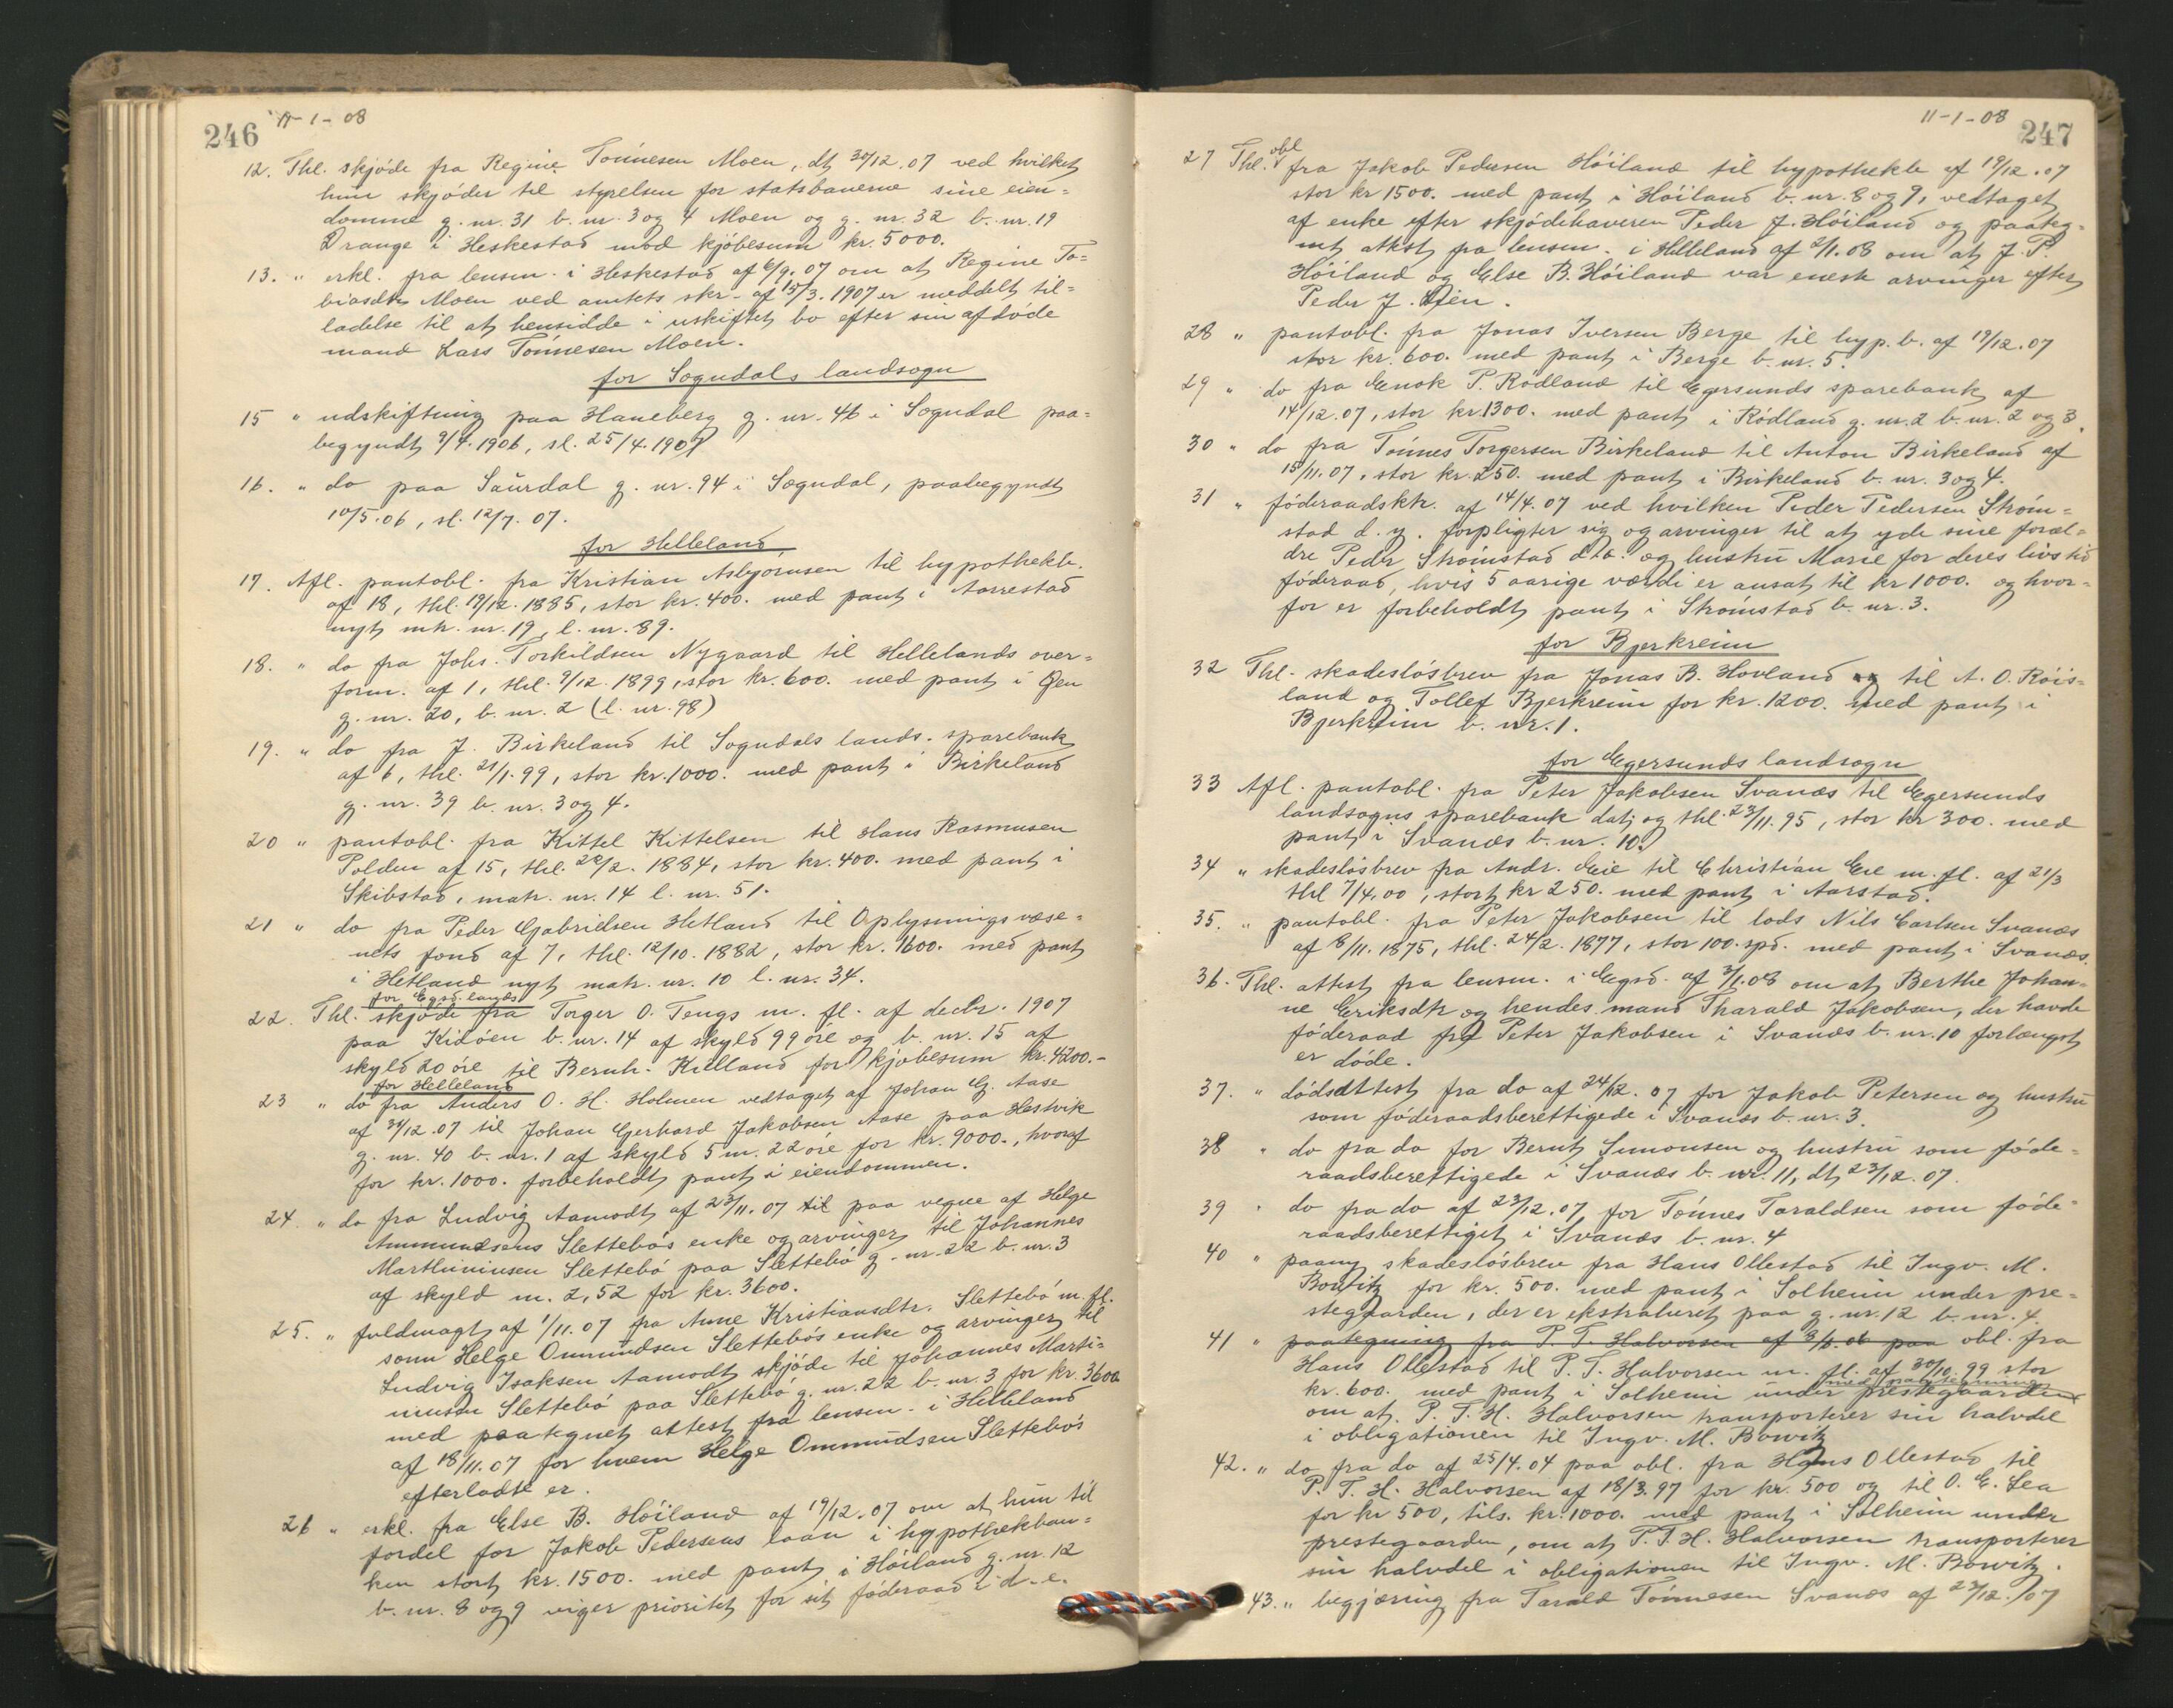 246 11-1-08
12. Thl. skjøde fra Regine Tønnesen Moen, dt. 30/12.07 ved hvilket
hun skjøder til styrelsen for statsbanerne sine eien-
domme g. nr. 31 b. nr. 3 og 4 Moen og g. nr. 32 b. nr. 19
Drange i Heskestad mod kjøbesum kr. 5000.
13. " erkl. fra lensm. i Heskestad af 6/9.07 om at Regine To-
biasdtr Moen ved amtets skr. af 15/3.1907 er meddelt til-
ladelse til at hensidde i uskiftet bo efter sin afdøde
mand Lars Tønnesen Moen.
for Sogndals landsogn
15 " udskiftning paa Haneberg g. nr. 46 i Sogndal paa-
begyndt 9/4.1906, sl. 25/4.1907
16. " do paa Saurdal g. nr. 94 i Sogndal, paabegyndt
10/5.06, sl. 12/7.07.
for Helleland
17. Afl. pantobl. fra Kristian Asbjørnsen til hypothekb.
af 18, thl. 19/12.1885, stor kr. 400. med pant i Aarrestad
nyt mtr. nr. 19, l. nr. 89.
18. " do fra Johs. Torkildsen Nygaard til Hellelands over-
form. af 1, thl. 9/12.1899, stor kr. 600. med pant i Øen
g. nr. 20, b. nr. 2 (l. nr. 98)
19. " do fra J. Birkeland til Sogndals lands. sparebank
af 6, thl. 21/1.99, stor kr. 1000. med pant i Birkeland
g. nr. 39 b. nr. 3 og 4.
20 " pantobl. fra Kittel Kittelsen til Hans Rasmusen
Polden af 15, thl. 28/2.1884, stor kr. 400. med pant i
Skibstad, matr. nr. 14 l. nr. 51.
21 " do fra Peder Gabrielsen Hetland til Oplysningsvæse-
nets fond af 7, thl. 12/10.1882, stor kr. 1600. med pant
i Hetland nyt matr. nr. 10 l. nr. 34.
for Egsd. lands
22. Thl. skjøde fra Torger O. Tengs m. fl. af decbr. 1907
paa Kidøen b. nr. 14 af skyld 99 øre og b. nr. 15 af
skyld 20 øre til Bernh. Kielland for kjøbesum kr. 4200.-
for Helleland
23 " do fra Anders O. H. Holmen vedtaget af Johan G. Aase
af 31/12.07 til Johan Gerhard Jakobsen Aase paa Hestvik
g. nr. 40 b. nr. 1 af skyld 5 m. 22 øre for kr. 9000., hvoraf
for kr. 1000. forbeholdt pant i eiendommen.
24. " do fra Ludvig Aamodt af 23/11.07 til paa vegne af Helge
Ammundsens Slettebøs enke og arvinger til Johannes
Marthiniusen Slettebø paa Slettebø g. nr. 22 b. nr. 3
af skyld m. 2,52 for kr. 3600.
25. " fuldmagt af 1/11.07 fra Anne Kristiansdtr. Slettebø m. fl.
som Helge Ommundsen Slettebøs enke og arvinger til
Ludvig Isaksen Aamodt skjøde til Johannes Marti-
niusen Slettebø paa Slettebø g. nr. 22 b. nr. 3 for kr. 3600
med paategnet attest fra lensm. i Helleland
af 18/11.07 for hvem Helge Ommundsen Slettebøs
efterladte er.
26 " erkl. fra Else B. Høiland af 19/12.07 om at hun til
fordel for Jakob Pedersens laan i hypothekban-
ken stort kr. 1500. med pant i Høiland g. nr. 12
b. nr. 8 og 9 viger prioritet for sit føderaad i d. e.
11-1-08 247
27 Thl. obl fra Jakob Pedersen Høiland til hypothekb af 19/12.07
stor kr 1500. med pant i Høiland b. nr. 8 og 9, vedtaget
af enke efter skjødehaveren Peder J. Høiland og paateg-
net attest fra lensm. i Helleland af 2/1.08 om at J. P.
Høiland og Else B. Høiland var eneste arvinger efter
Peder J. Øien.
28 " pantobl. fra Jonas Iversen Berge til hyp. b. af 19/12.07
stor kr. 600. med pant i Berge b. nr. 5.
29 " do fra Enok P. Rødland til Egersunds sparebank af
14/12.07, stor kr. 1300. med pant i Rødland g. nr. 2 b. nr. 2 og 3.
30 " do fra Tønnes Torgersen Birkeland til Anton Birkeland af
15/11.07, stor kr. 250. med pant i Birkeland b. nr. 3 og 4.
31 " føderaadsktr. af 14/4.07 ved hvilken Peder Pedersen Strøm-
stad d. y. forpligter sig og arvinger til at yde sine foræl-
dre Peder Strømstad d. æ. og hustru Marie for deres livstid
føderaad, hvis 5 aarige værdi er ansat til kr 1000. og hvor-
for er forbeholdt pant i Strømstad b. nr. 3.
for Bjerkreim
32 Thl. skadesløsbrev fra Jonas B. Hovland og til A. O. Røis-
land og Tollef Bjerkreim for kr. 1200. med pant i
Bjerkreim b. nr. 1.
for Egersunds landsogn
33 Afl. pantobl. fra Peter Jakobsen Svanæs til Egersunds
landsogns sparebank dat. og thl. 23/11.95, stor kr 300. med
pant i Svanæs b. nr. 10.
34 " skadesløsbrev fra Andr. Eeie til Christian Eie m. fl. af 21/3
thl 7/4.00, stort kr 250. med pant i Aarstad.
35. " pantobl. fra Peter Jakobsen til lods Nils Carlsen Svanæs
af 8/11.1875, thl. 24/2.1877, stor 100. spd. med pant i Svanæs.
36. Thl. attest fra lensm. i Egsd. af 3/1.08 om at Berthe Johan-
ne Eriksdtr og hendes mand Tharald Jakobsen, der havde
føderaad fra Peter Jakobsen i Svanæs b. nr. 10 forlængst
er døde.
37. " dødsattest fra do af 24/12.07 for Jakob Petersen og hustru
som føderaadsberettigede i Svanæs b. nr. 3.
38 " do fra do for Bernt Simonsen og hustru som føde-
raadsberettigede i Svanæs b. nr. 11, dt. 23/12.07.
39 " do fra do af 23/12.07 for Tønnes Taraldsen som føde-
raadsberettiget i Svanæs b. nr. 4
40 " paany skadesløsbrev fra Hans Ollestad til Ingv. M.
Bowitz for kr. 500. med pant i Solheim under pre-
stegaarden, der er ekstraheret paa g. nr. 12 b. nr. 4.
41 " paategning fra P. T. Halvorsen af 3/6.06 paa obl. fra
Hans Ollestad til P. T. Halvorsen m. fl. af 30/10.99 stor
kr. 600. med pant i Solheim under prestegaarden
med paategning
om at P. T. H. Halvorsen transporterer sin halvdel
i obligationen til Ingv. M. Bowitz
42. " do fra do af 25/4.04 paa obl. fra Hans Ollestad til
P. T. H. Halvorsen af 18/3.97 for kr. 500 og til O. E. Lea
for kr 500, tils. kr. 1000. med pant i Solheim under
prestegaarden, om at P. T. H. Halvorsen transporterer
sin halvdel i obligationen til Ingv. M. Bowitz.
43. " begjæring fra Tarald Tønnesen Svanæs af 23/12.07